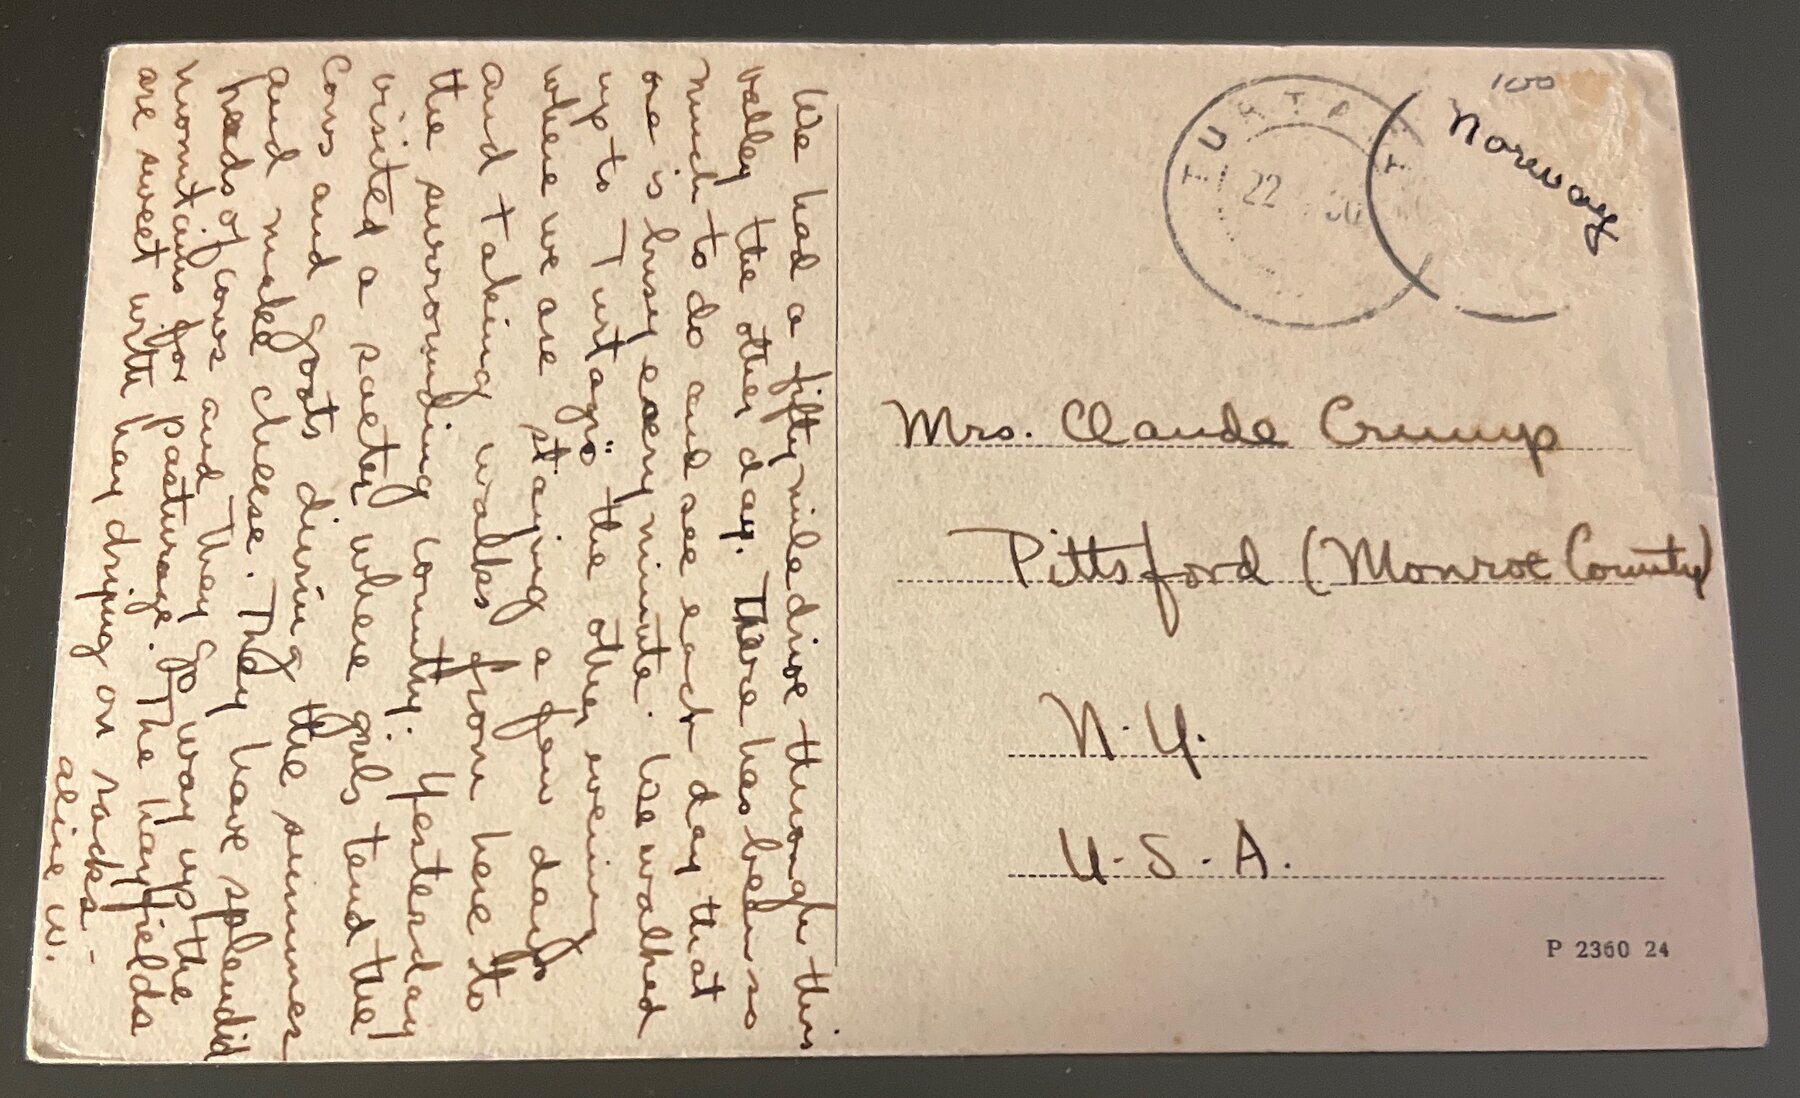 We had a fifty mile drive through this
valley the other day. There has been so
much to do and see each day that
one is busy every minute. We walked
up to Turtagrö the other evening
where we are staying a few days
and taking walks from here to
the surrounding country. Yesterday
visited a saeter where girls tend the
cows and goats during the summer
and make cheese. They have splendid
heads of cows and they go way up the
mountains for pasturage. The hayfields
are sweet with hay drying on racks.-
aline W.
100
Norway
22
Mrs. Claude Crump
Pittsford (Monroe County)
N.Y.
U.S.A.
P 2360 24